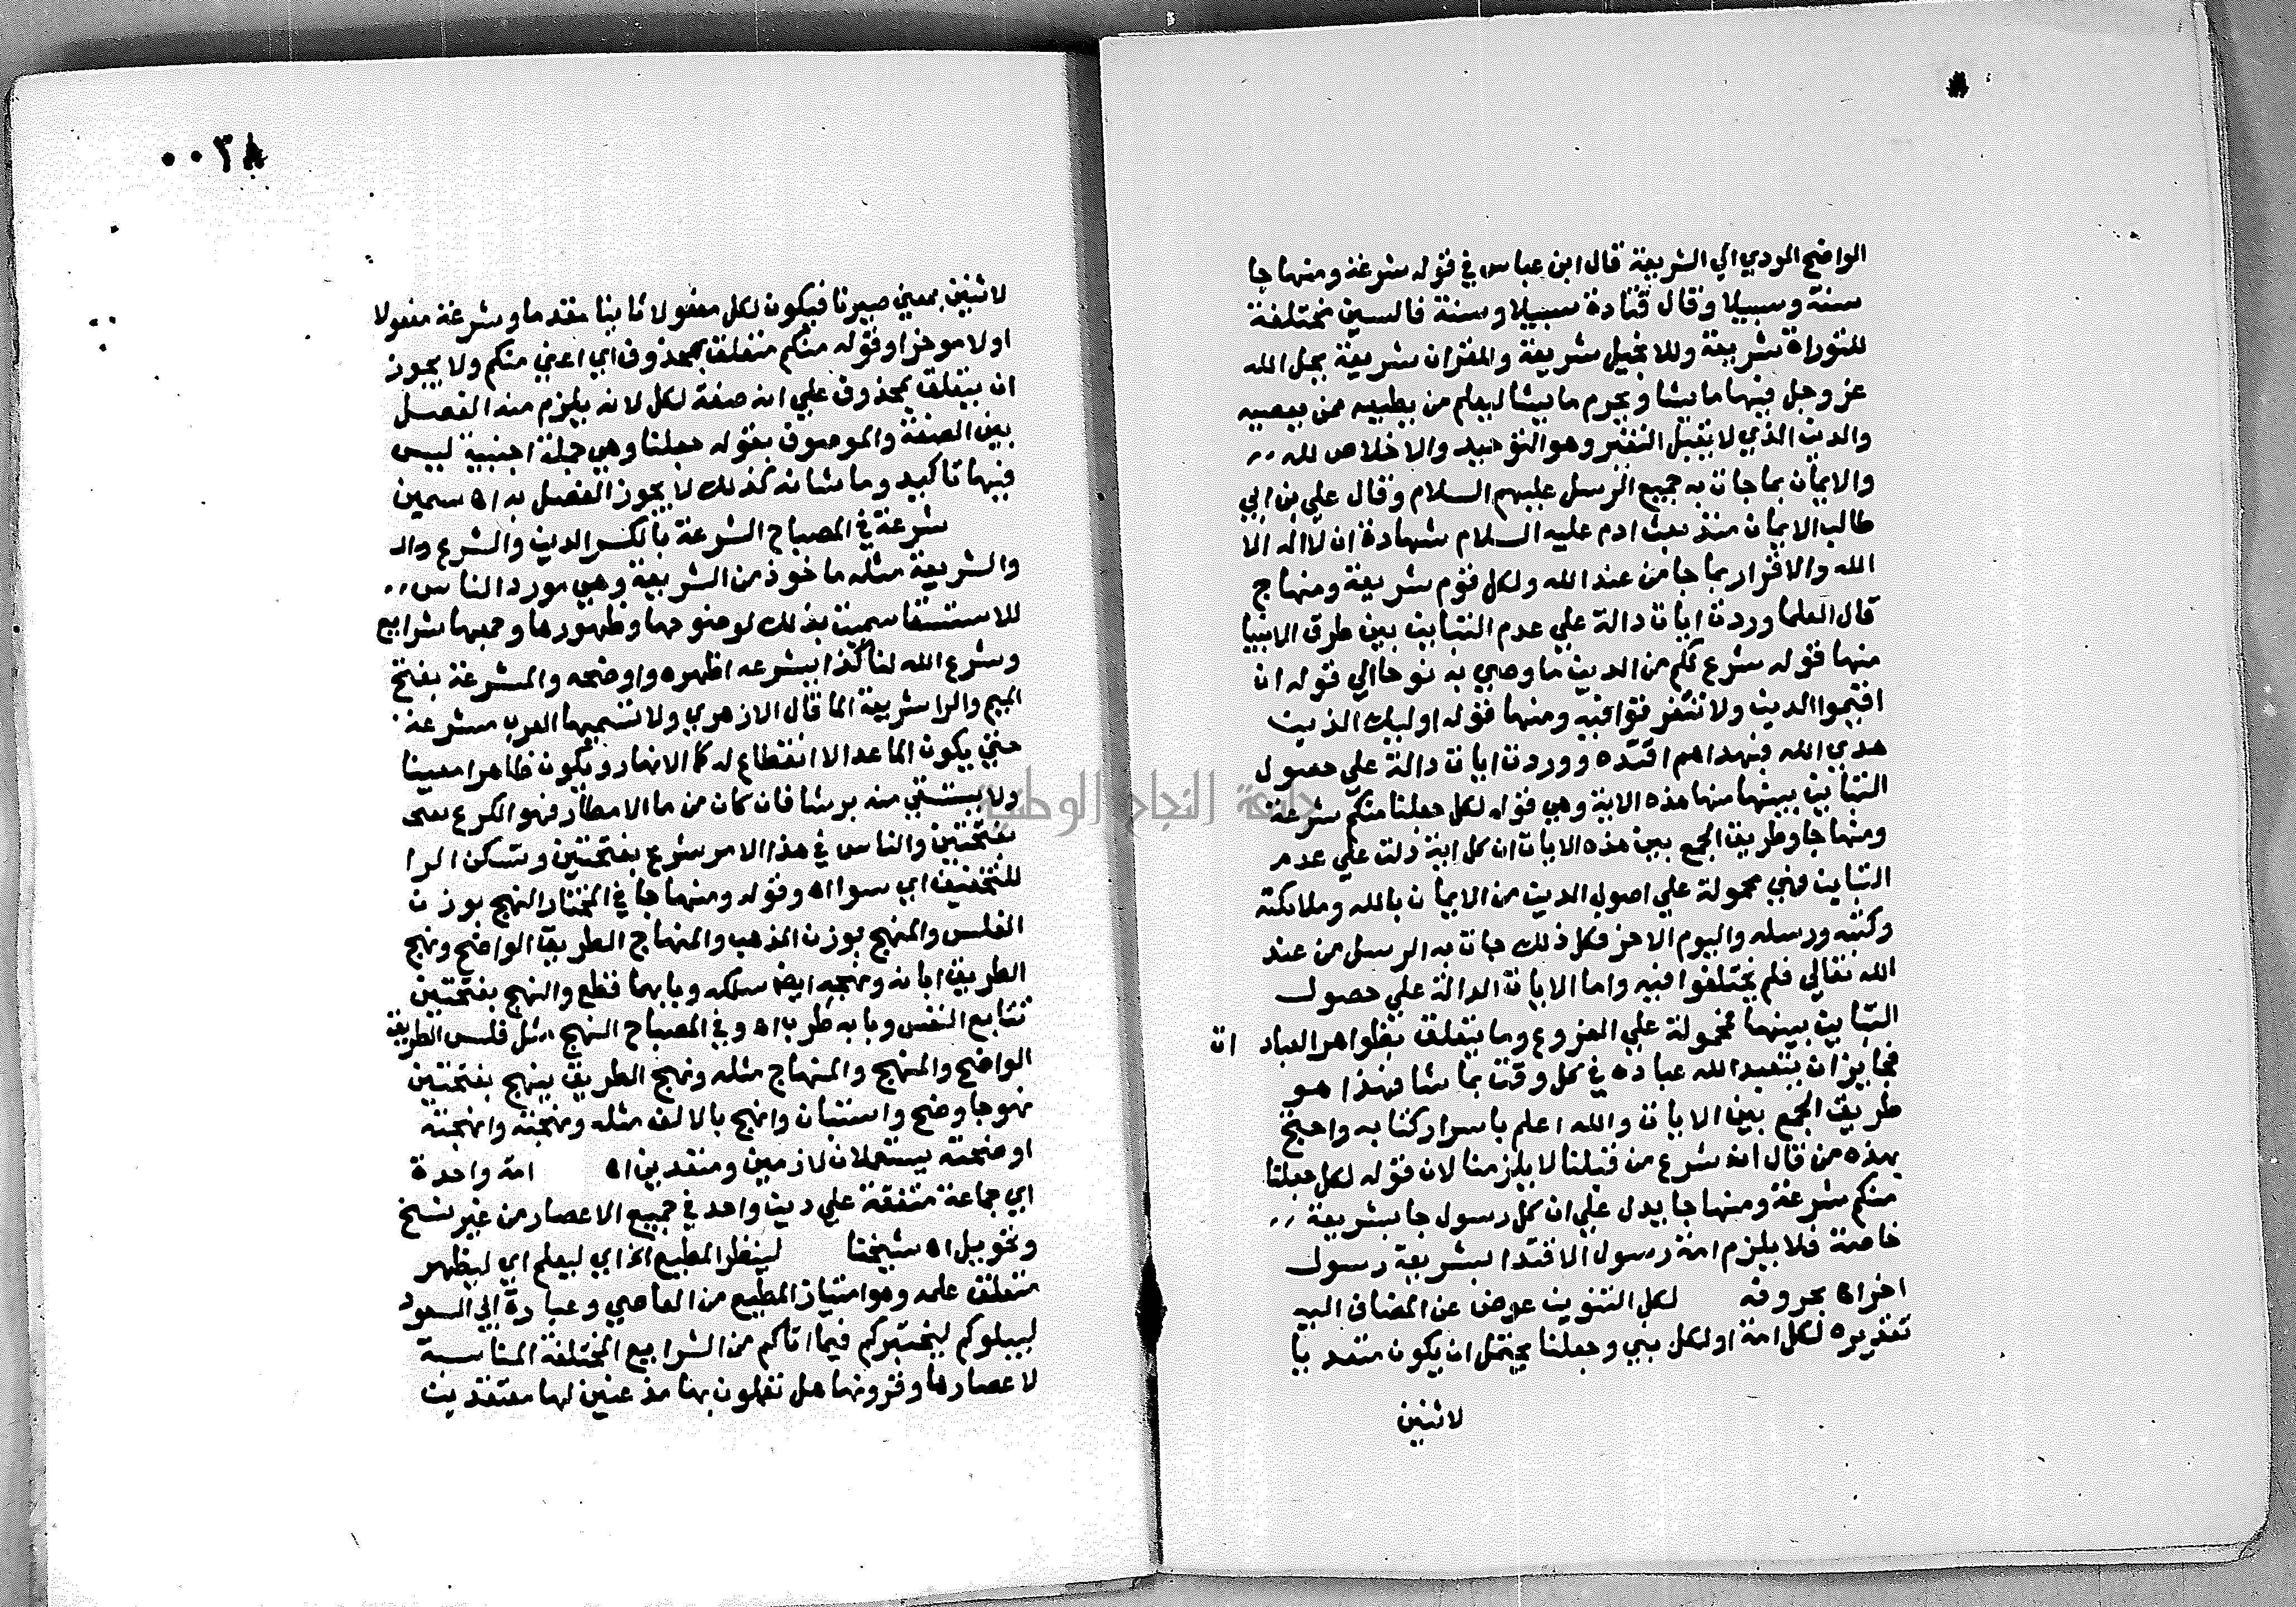 الواضح المودي الي الشريعة قال ابن عباس في قوله شرعة ومنهاجا
سنة وسبيلا وقال قتادة سبيلا وسنة فالسنن مختلفة
للتوراة شريعة وللانجيل شريعة والقران شريعة يحل الله
عز وجل فيها ما يشا ويحرم ما يشا ليعلم من يطيعه ممن يعصيه
والدين الذي لا يقبل التغير وهو التوحيد والاخلاص لله
والايمان بما جات به جميع الرسل عليهم السلام وقال علي بن ابي
طالب الايمان منذ بعث ادم عليه السلام شهادة ان لا اله الا
الله والاقرار بما جا من عند الله ولكل قوم شريعة ومنهاج
قال العلما وردت ايات دالة علي عدم التباين بين طرق الانبيا
منها قوله شرع لكم من الدين ما وصي به نوحا الي قوله ان
اقيموا الدين ولا تتفرقوا فيه ومنها قوله اوليك الذين
هدي الله فبهداهم اقتده ووردت ايات دالة علي حصول
التباين بينها منها هذه الاية وهي قوله لكل جعلنا منكم شرعة
ومنهاجا وطريق الجمع بين هذه الايات ان كل اية دلت علي عدم
التباين فهي محمولة علي اصول الدين من الايمان بالله وملايكته
وكتبه ورسله واليوم الاخر فكل ذلك جات به الرسل من عند
الله تعالي فلم يختلفوا فيه واما الايات الدالة علي حصول
التباين بينهما فمحمولة علي الفروع وما يتعلق بظواهر العباد ات
فجايز ان يتعبد الله عباده في كل وقت بما شا فهذا هو
طريق الجمع بين الايات والله اعلم باسرار كتابه واحتج
بهذه من قال ان شرع من قبلنا لا يلزمنا لان قوله لكل جعلنا
منكم شرعة ومنهاجا يدل علي ان كل رسول جا بشريعة
خاصة فلا يلزم امة رسول الاقتدا بشريعة رسول
اخر اه بحروفه لكل التنوين عوض عن المضاف اليه
تقديره لكل امة او لكل نبي وجعلنا يحتمل ان يكون متعديا
لاثنين
٠٠٣٨
لاثنين بمعني صيرنا فيكون لكل مفعولا ثانيا مقدما وشرعة مفعولا
اولا موخرا وقوله منكم متعلق بمحذوف اي اعني منكم ولا يجوز
ان يتعلق بمحذوف علي انه صفة لكل لانه يلزم منه الفصل
بين الصفة والموصوف بقوله جعلنا وهي جملة اجنبية ليس
فيها تاكيد وما شانه كذلك لا يجوز الفصل به اه سمين
شرعة في المصباح الشرعة بالكسر الدين والشرع وال
والشريعة مثله ماخوذ من الشريعة وهي مورد الناس
للاستسقا سميت بذلك لوضوحها وظهورها وجمعها شرايع
وشرع الله لنا كذا يشرعه اظهره واوضحه والمشرعة بفتح
الميم والرا شريعة الما قال الازهري ولا تسميها العرب مشرعة
حتي يكون الما عدا لا انقطاع له كما الانهار ويكون ظاهرا معينا
ولا يستسقي منه برشا فان كان من ما الامطار فهو الكرع
بفتحتين والناس في هذا الامر شرع بفتحتين وتسكن الرا
للتخفيف اي سوا اه وقوله ومنهاجا في المختار النهج بوزن
الفلس والمنهج بوزن المذهب والمنهاج الطريق الواضح ونهج
الطريق ابانه ونهجه ايضا سلكه وبابهما قطع والنهج بفتحتين
تتابع النفس وبابه طرب اه وفي المصباح النهج مثل فلس الطريق
الواضح والمنهج والمنهاج مثله ونهج الطريق ينهج بفتحتين
نهوجا وضح واستبان وانهج بالالف مثله ونهجته وانهجته
اوضحته يستعملان لازمين ومتعديين اه امة واحدة
اي جماعة متفقة علي دين واحد في جميع الاعصار من غير نسخ
وتحويل اه شيخنا لينظر المطيع الخ اي ليعلم اي ليظهر
متعلق علمه وهو امتياز المطيع من العاصي وعبارة ابي السعود
ليبلوكم ليختبركم فيما اتاكم من الشرايع المختلفة المناسبة
لاعصارها وقرونها هل تعملون بها مذعنين لها معتقدين
جامعة النجاح الوطنية